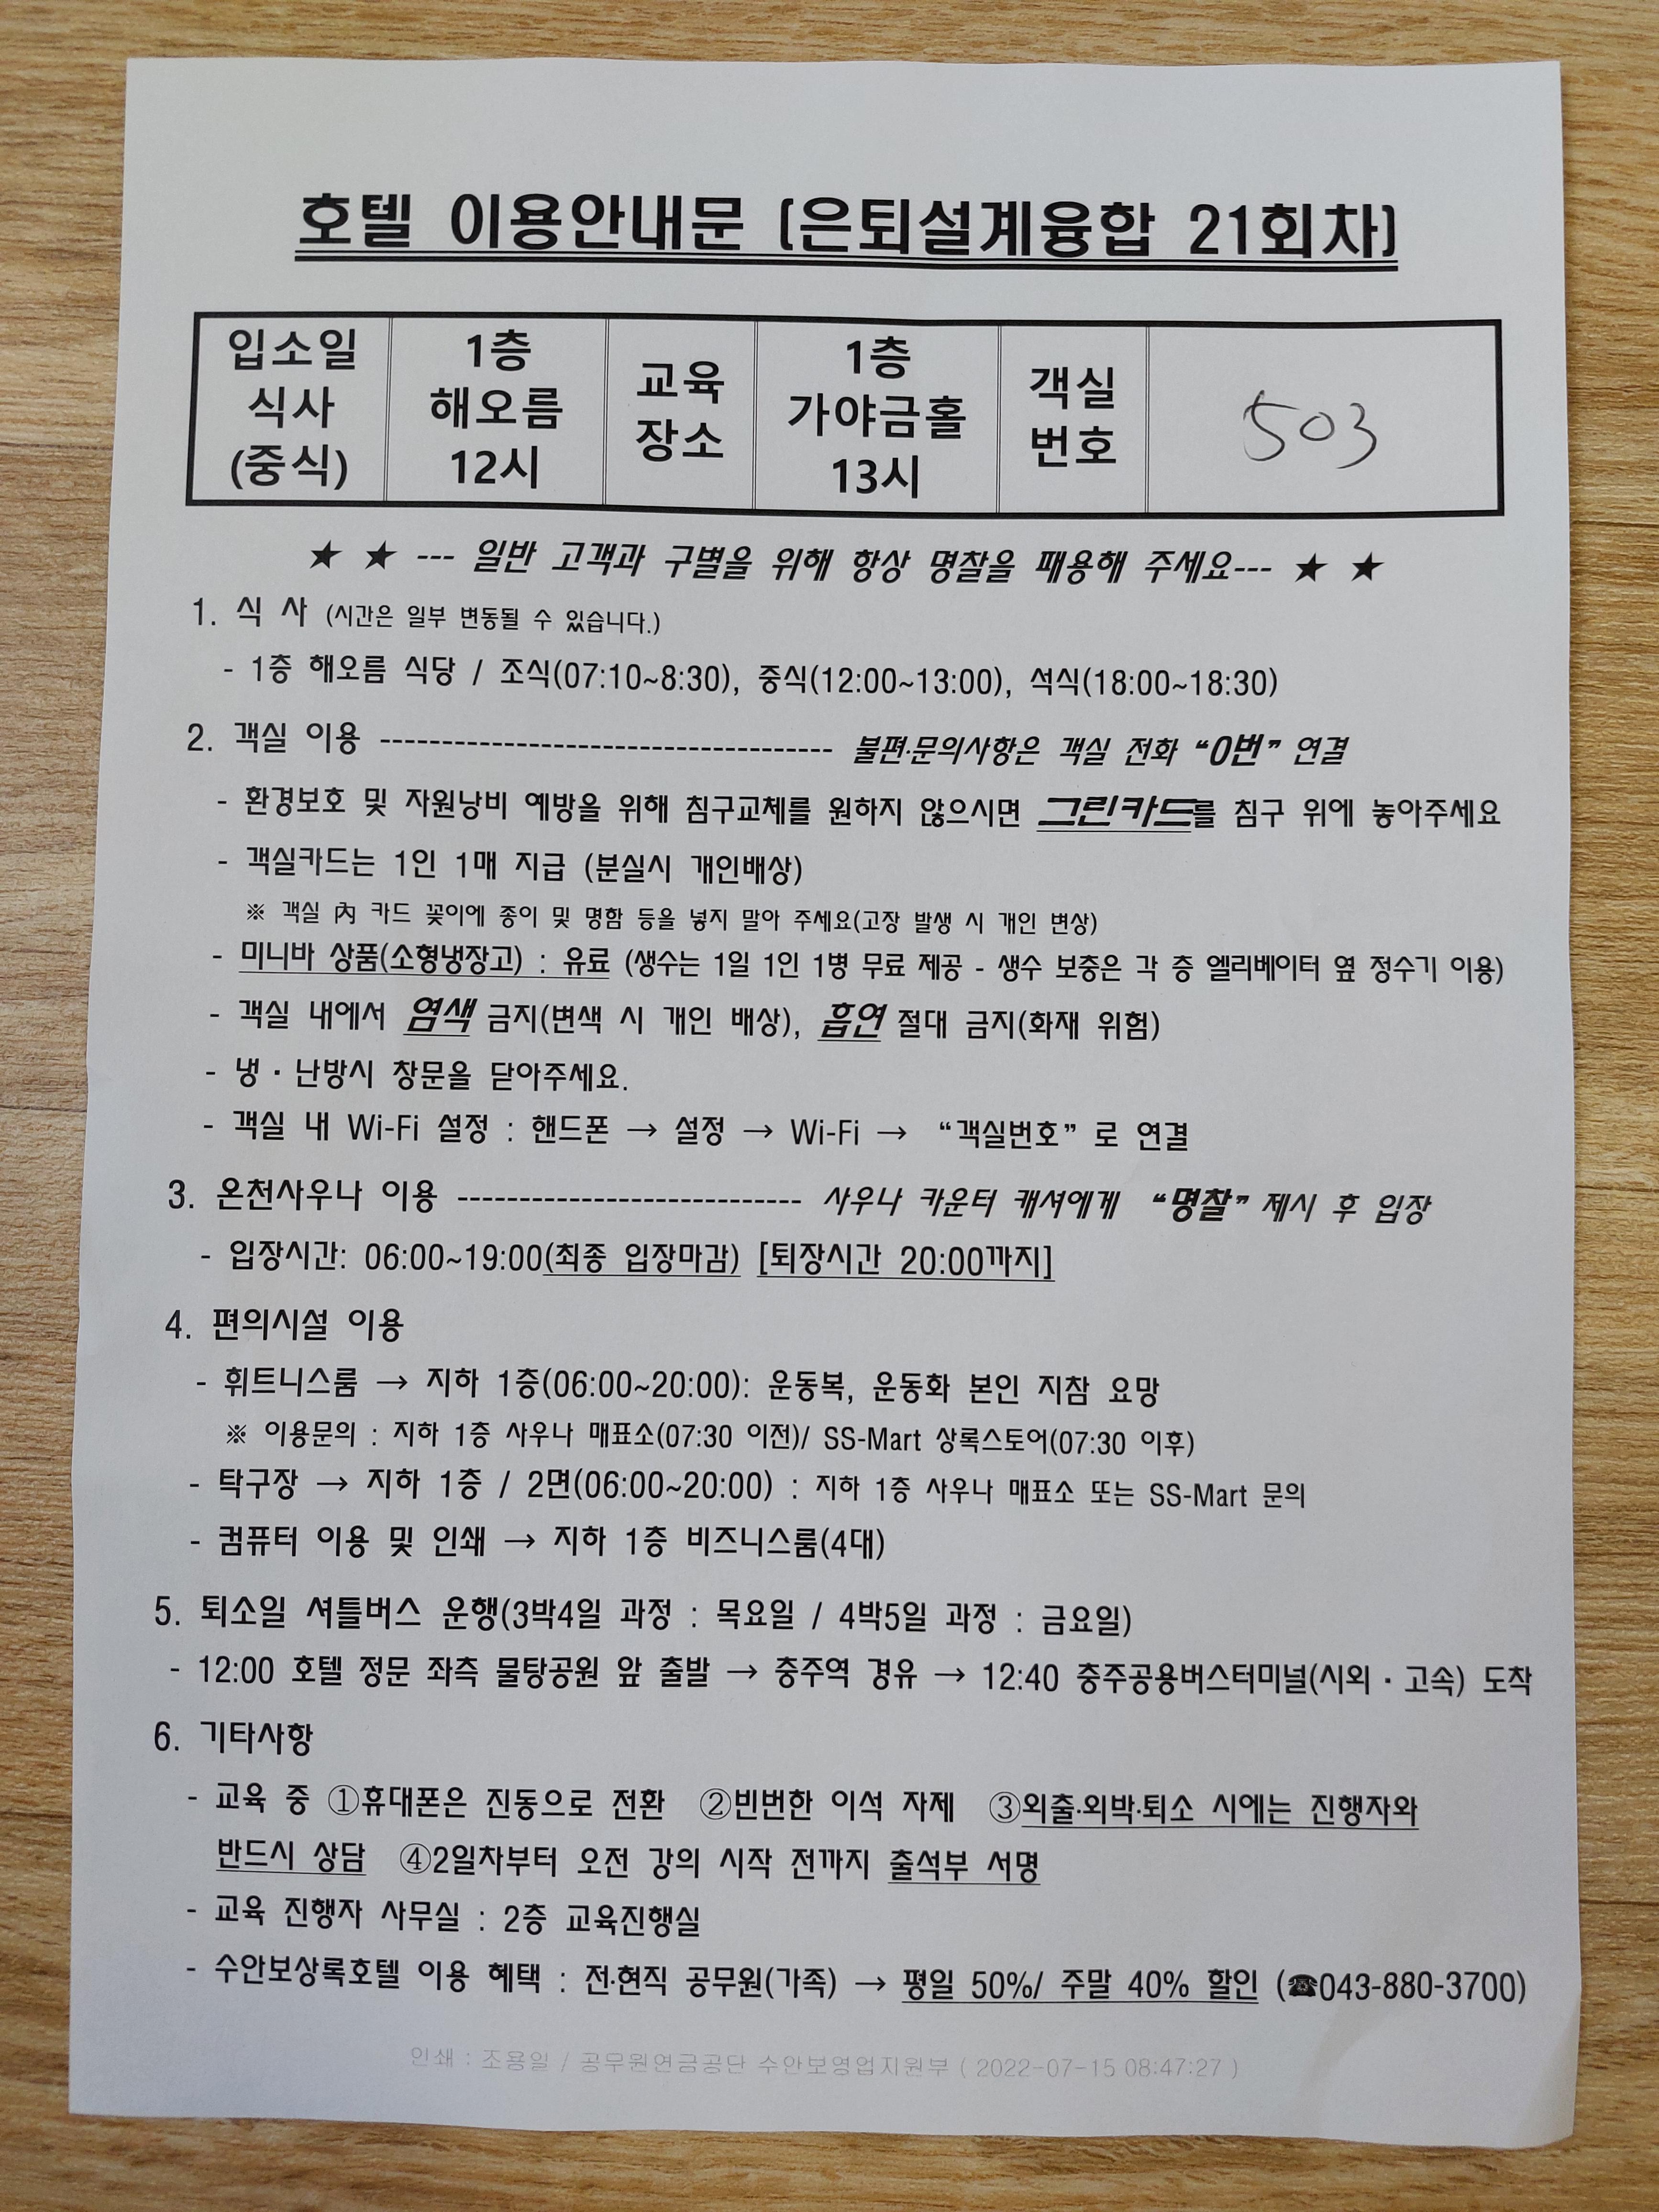 호텔 이용안내문 (은퇴설계융합 21회차)
입소일 식사 (중식)
1층 해오름 12시
교육 장소
1층 가야금홀 13시
객실 번호
503
★ ★ --- 일반 고객과 구별을 위해 항상 명찰을 패용해 주세요--- ★ ★
1. 식 사 (시간은 일부 변동될 수 있습니다.)
- 1층 해오름 식당 / 조식(07:10~8:30), 중식(12:00~13:00), 석식(18:00~18:30)
2. 객실 이용 ------------------------------------- 불편·문의사항은 객실 전화 “0번” 연결
- 환경보호 및 자원낭비 예방을 위해 침구교체를 원하지 않으시면 그린카드를 침구 위에 놓아주세요
- 객실카드는 1인 1매 지급 (분실시 개인배상)
※ 객실 內 카드 꽂이에 종이 및 명함 등을 넣지 말아 주세요(고장 발생 시 개인 변상)
- 미니바 상품(소형냉장고) : 유료 (생수는 1일 1인 1병 무료 제공 - 생수 보충은 각 층 엘리베이터 옆 정수기 이용)
- 객실 내에서 염색 금지(변색 시 개인 배상), 흡연 절대 금지(화재 위험)
- 냉·난방시 창문을 닫아주세요.
- 객실 내 Wi-Fi 설정 : 핸드폰 → 설정 → Wi-Fi → “객실번호” 로 연결
3. 온천사우나 이용 ---------------------------- 사우나 카운터 캐셔에게 “명찰” 제시 후 입장
- 입장시간: 06:00~19:00(최종 입장마감) [퇴장시간 20:00까지]
4. 편의시설 이용
- 휘트니스룸 → 지하 1층(06:00~20:00): 운동복, 운동화 본인 지참 요망
※ 이용문의 : 지하 1층 사우나 매표소(07:30 이전)/ SS-Mart 상록스토어(07:30 이후)
- 탁구장 → 지하 1층 / 2면(06:00~20:00) : 지하 1층 사우나 매표소 또는 SS-Mart 문의
- 컴퓨터 이용 및 인쇄 → 지하 1층 비즈니스룸(4대)
5. 퇴소일 셔틀버스 운행(3박4일 과정 : 목요일 / 4박5일 과정 : 금요일)
- 12:00 호텔 정문 좌측 물탕공원 앞 출발 → 충주역 경유 → 12:40 충주공용버스터미널(시외·고속) 도착
6. 기타사항
- 교육 중 ①휴대폰은 진동으로 전환 ②빈번한 이석 자제 ③외출·외박·퇴소 시에는 진행자와
반드시 상담 ④2일차부터 오전 강의 시작 전까지 출석부 서명
- 교육 진행자 사무실 : 2층 교육진행실
- 수안보상록호텔 이용 혜택 : 전·현직 공무원(가족) → 평일 50%/ 주말 40% 할인 (☎043-880-3700)
인쇄 : 조용일 / 공무원연금공단 수안보영업지원부 ( 2022-07-15 08:47:27 )